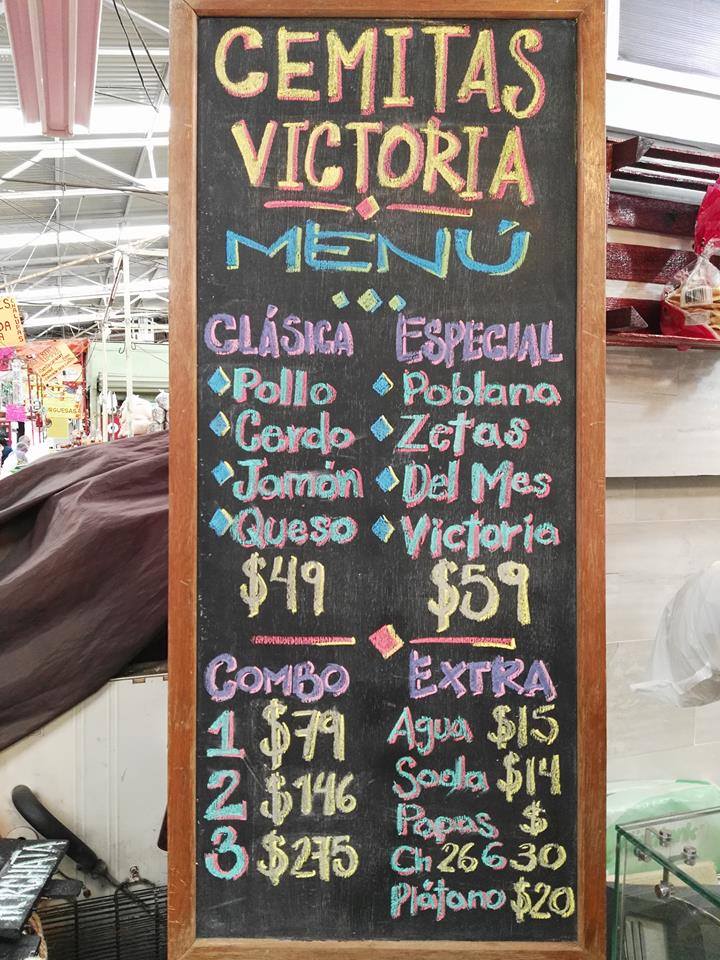 CEMITAS
VICTORIA
MENÚ
CLÁSICA
Pollo
Cerdo
Jamón
Queso
$49
ESPECIAL
Poblana
Zetas
Del Mes
Victoria
$59
COMBO
1 $79
2 $146
3 $275
EXTRA
Agua $15
Soda $14
Papas $
Ch 26 G 30
Plátano $20